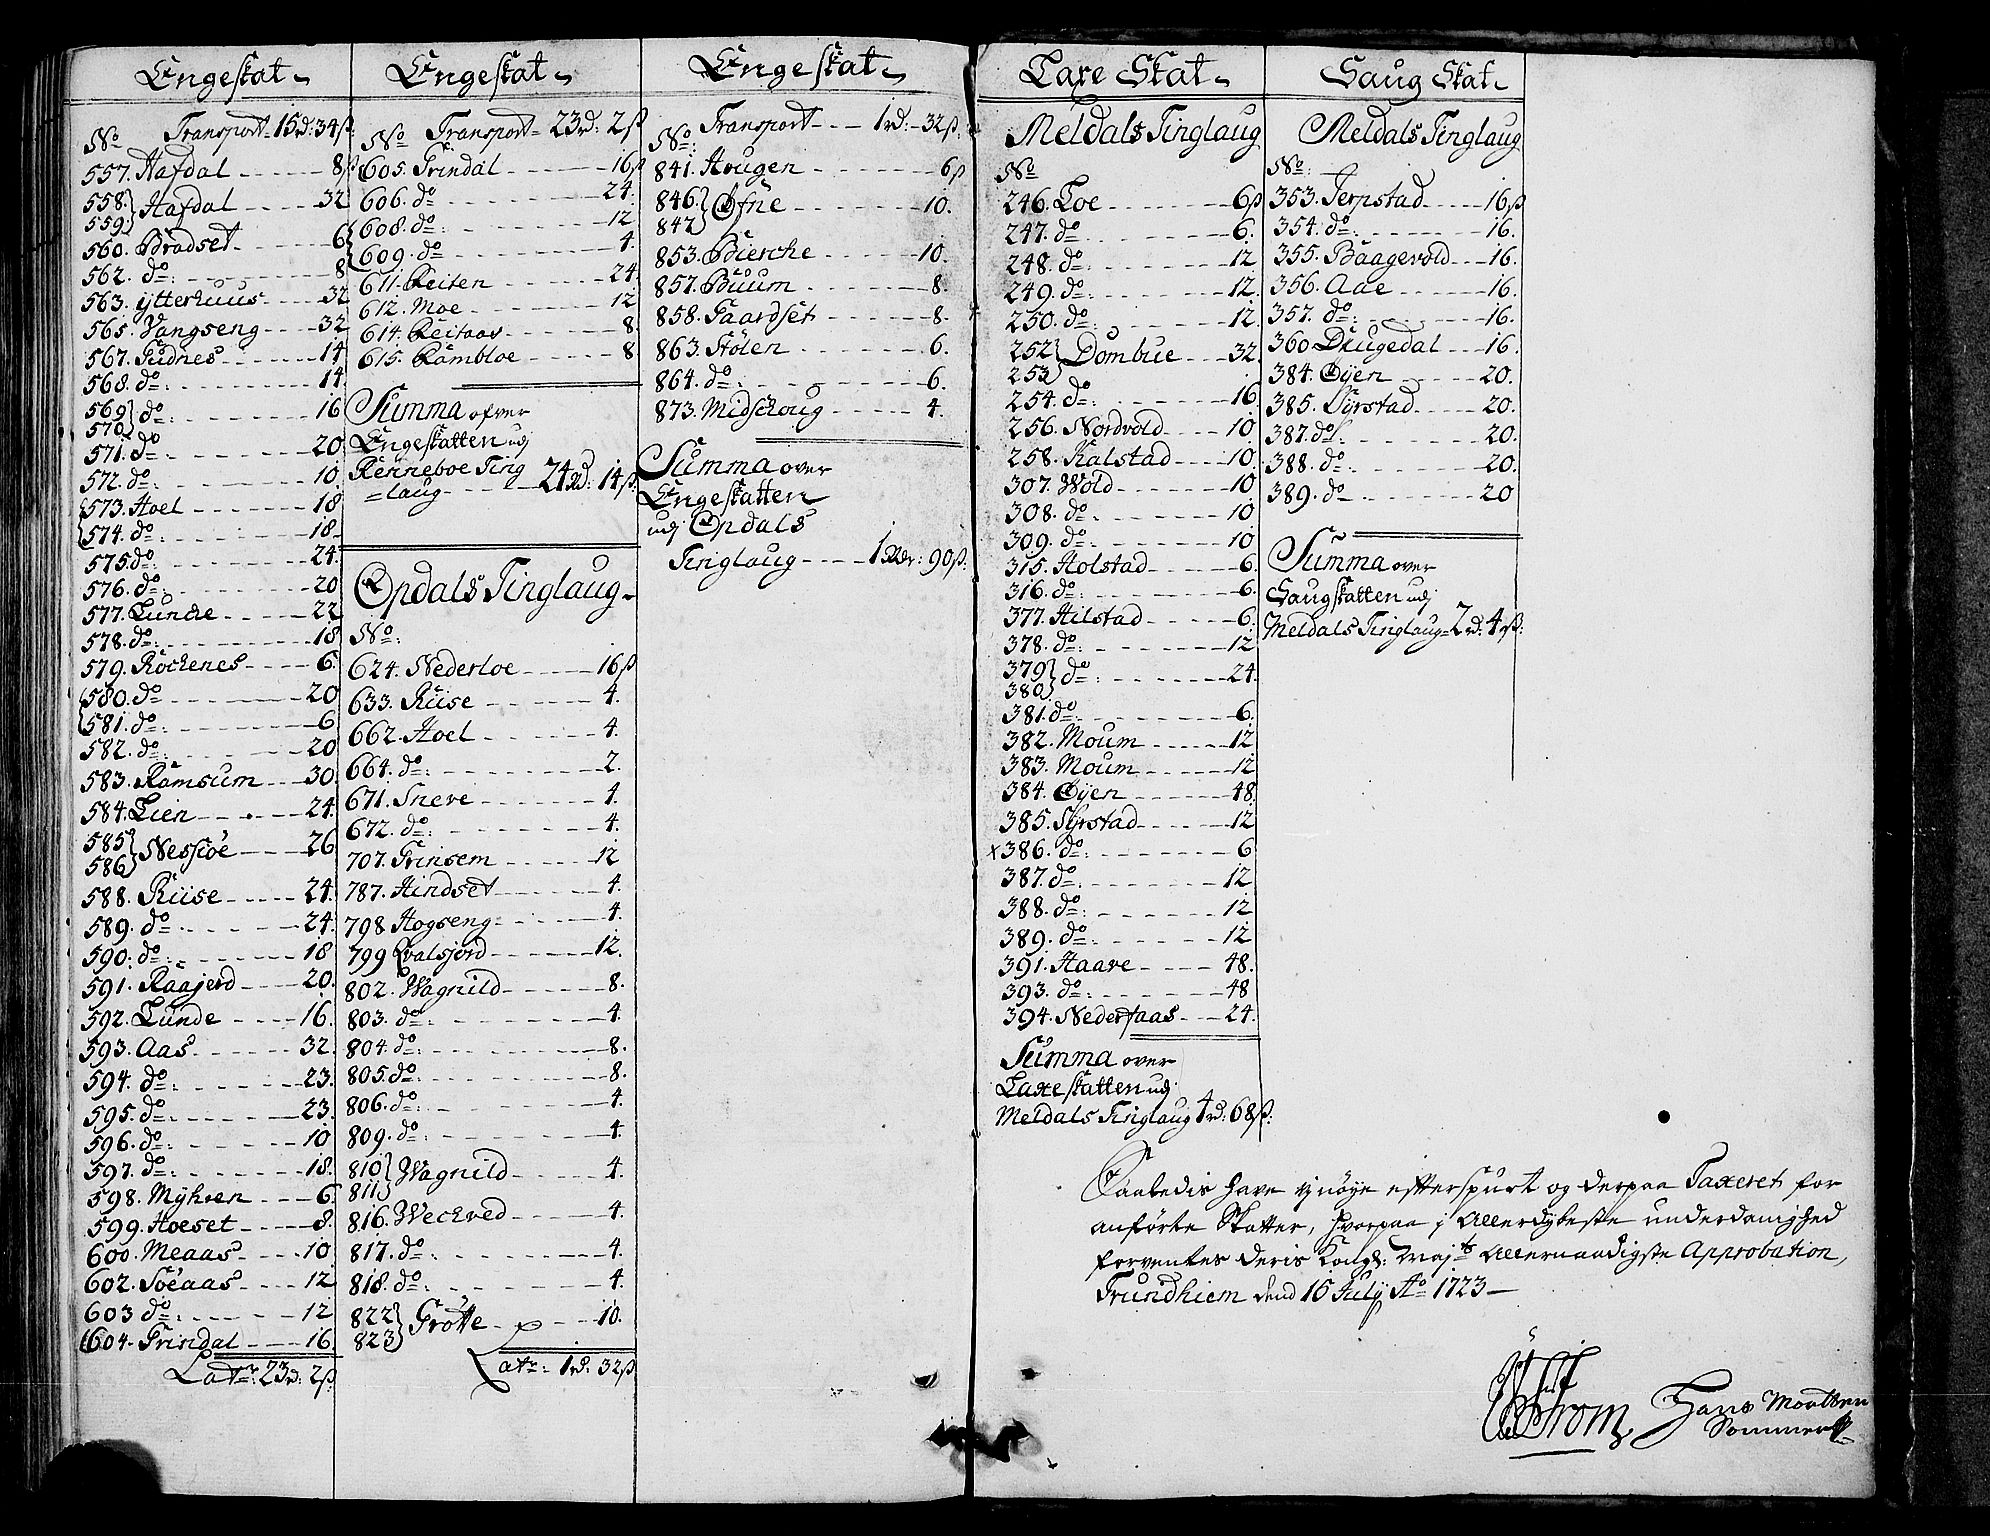 Engeskat
No Transport 15rd: 34ß
557. Hafdal 8ß
558. 559. Hafdal 32
560. Bradset 6
562. do 8
563. ytterhuus 32
565. Vangseng 32
567. Südnes 14
568. do 14
569. 570. do 16
571. do 20
572. do 10.
573. Hoel 18
574. do 18
575. do 24.
576. do 20
577. Lunche 22
578. do 18
579. Röchenes 6
580. do 20
581. do 6
582. do 20
583. Ramsum 30.
584. Lien 24.
585 586 Nessiöe 26
588. Riise 24.
589. do 24.
590. do 18
591. Raajerd 20.
592. Lunde 16.
593. Aas 32.
594. do 23.
595. do 23.
596. do 10
597. do 18.
598. Myhren 6
599. Hoeset 8.
600. Meaas 10
602. Soeaas 12
603 do 12
604. Trindal 16
Latr: 23rd: 2ß
Engeskat
No Transport 23rd: 2ß
605. Trindal 16ß
606. do 24.
608. do 12
609. do 4.
611. Reiten 24.
612. Moe 12
614. Reitaas 8.
615. Rambloe 8
Summa ofver
Engeskatten udj
Renneboe Ting
=laug 24rd: 14ß.
Opdals Tinglaug
No:
624. Nederloe 16ß
633. Riise 4.
662. Hoel 4.
664. do 2.
671. Sneve 4.
672. do 4.
707. Trinsem 12
787. Hindset 4.
798 Hogseng 4.
799 Qvalsjord 12.
802. Wagnild 8.
803. do 4.
804. do 8.
805. do 8.
806. do 4.
809. do 4.
810 811 Wagnild 4.
816. Weckved 4.
817. do 4.
818. do 4.
822 823 Grötte 10.
Latr: 1rd: 32ß
Engeskat
Transport 1rd: 32ß.
No:
841. Hougen 6ß
846. 847 Ofne 10.
853. Bierche 10.
857. Buum 8.
858. Taardset 8.
863. Stölen 6.
864. do 6.
873. Midschoug 4.
Summa over
Engeskatten
udj Opdals
Tinglaug 1Rdr: 90ß.
Laxe Skat
Meldals Tinglaug
No
246. Loe 6ß
247. do 6.
248. do 12
249. do 12.
250. do 12.
252 253 Dombue 32.
254. do 16
256. Nordvold 10
258. Kalstad 10.
307. Wold 10
308. do 10
309. do 10
315. Holstad 6.
316. do 6.
377. Hilstad 6.
378. do 12
379 380 do 24.
381. do 6.
382. Moum 12
383. Moum 12
384. Øyen 48.
385. Syrstad 12
x386. do 6
387. do 12
388. do 12
389. do 12
391. Haare 48.
393. do 48
394. Nederfaas 24.
Summa over
Laxeskatten udj
Meldals Tinglaug 4rd: 68ß.
Saug Skat
Meldals Tinglaug
No:
353. Jerpstad 16ß
354. do 16.
355. Baagevold 16.
356. Aae 16.
357. do 16.
360 Drugedal 16.
384. Øyen 20.
385. Syrstad 20.
387. do 20.
388. do 20.
389. do 20
Summa over
Saugskatten udj
Meldals Tinglaug 2rd: 4ß:
Saaledis have vj nøye efterspurt og derpaa Taxeret for
anførte Skatter, hvorpaa j Allerdybeste underdanighed
forventes deris Kongl: Majts Allernaadigste Approbation,
Trundhiem dend 16 July Ao 1723
Strom Hans Moatzen
Sommer